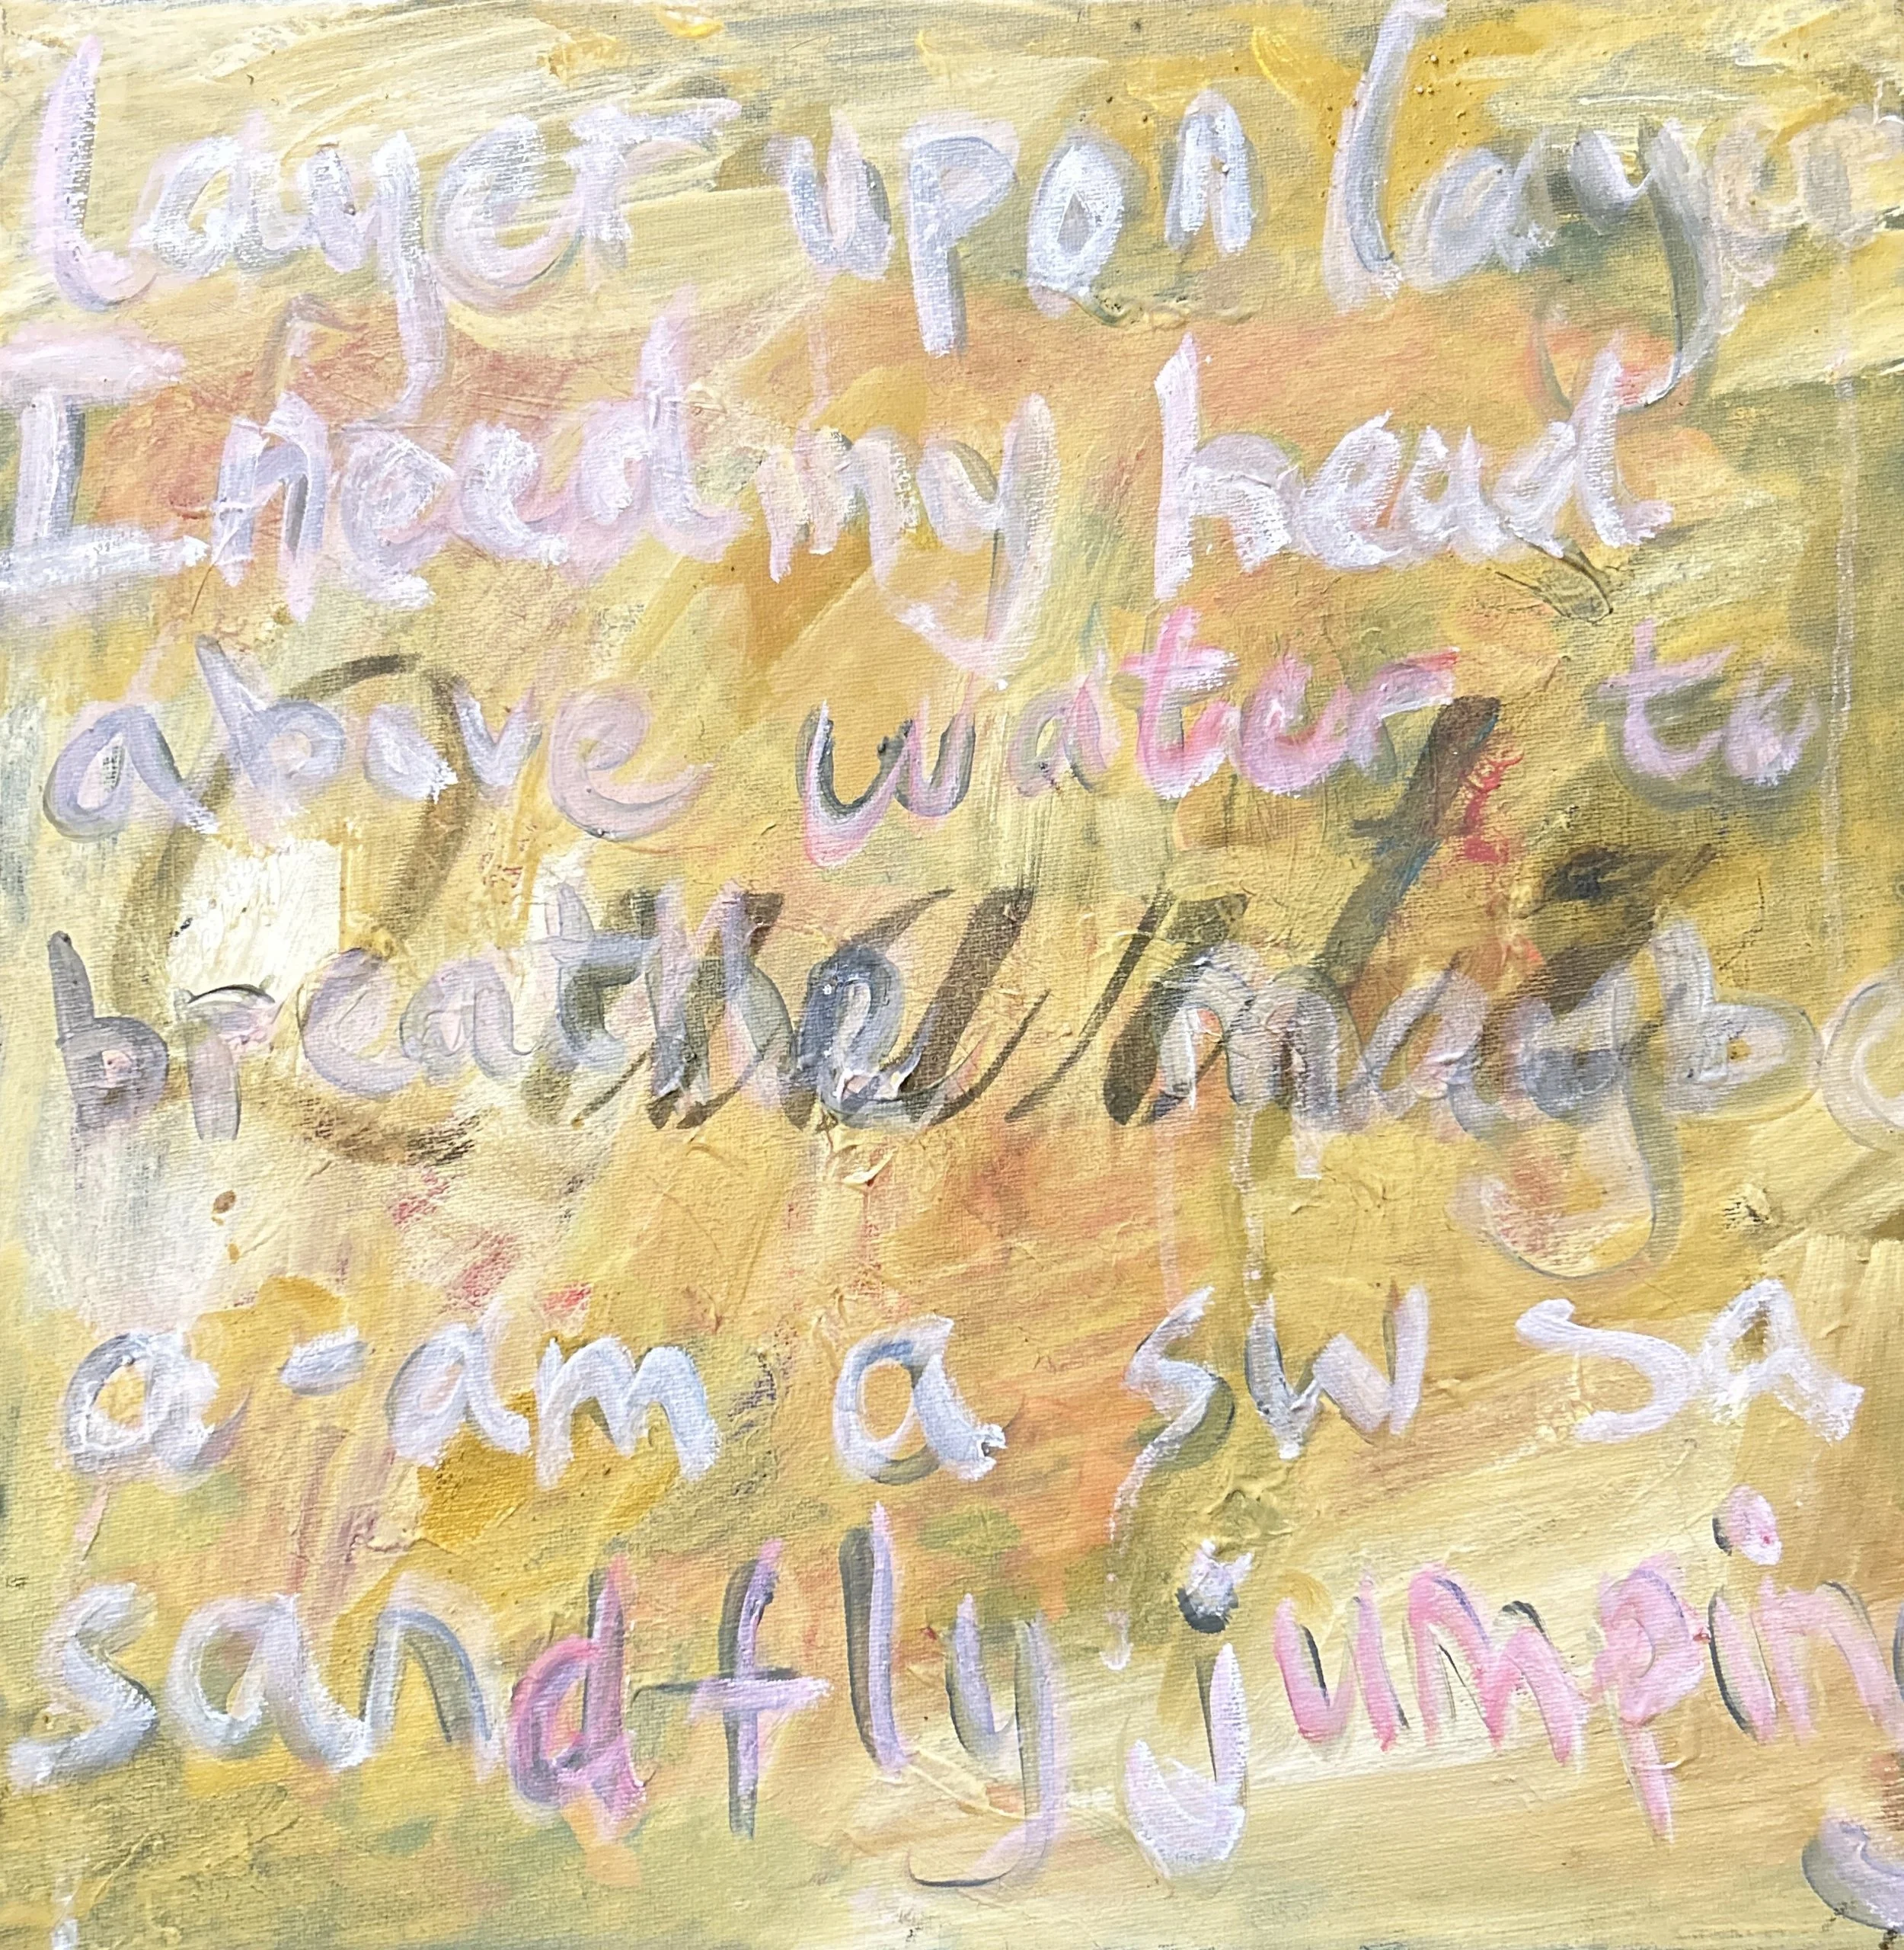 Layer upon layer
I need my head
above water to
breathe maybe
a-am a sw sa
sandfly jumping